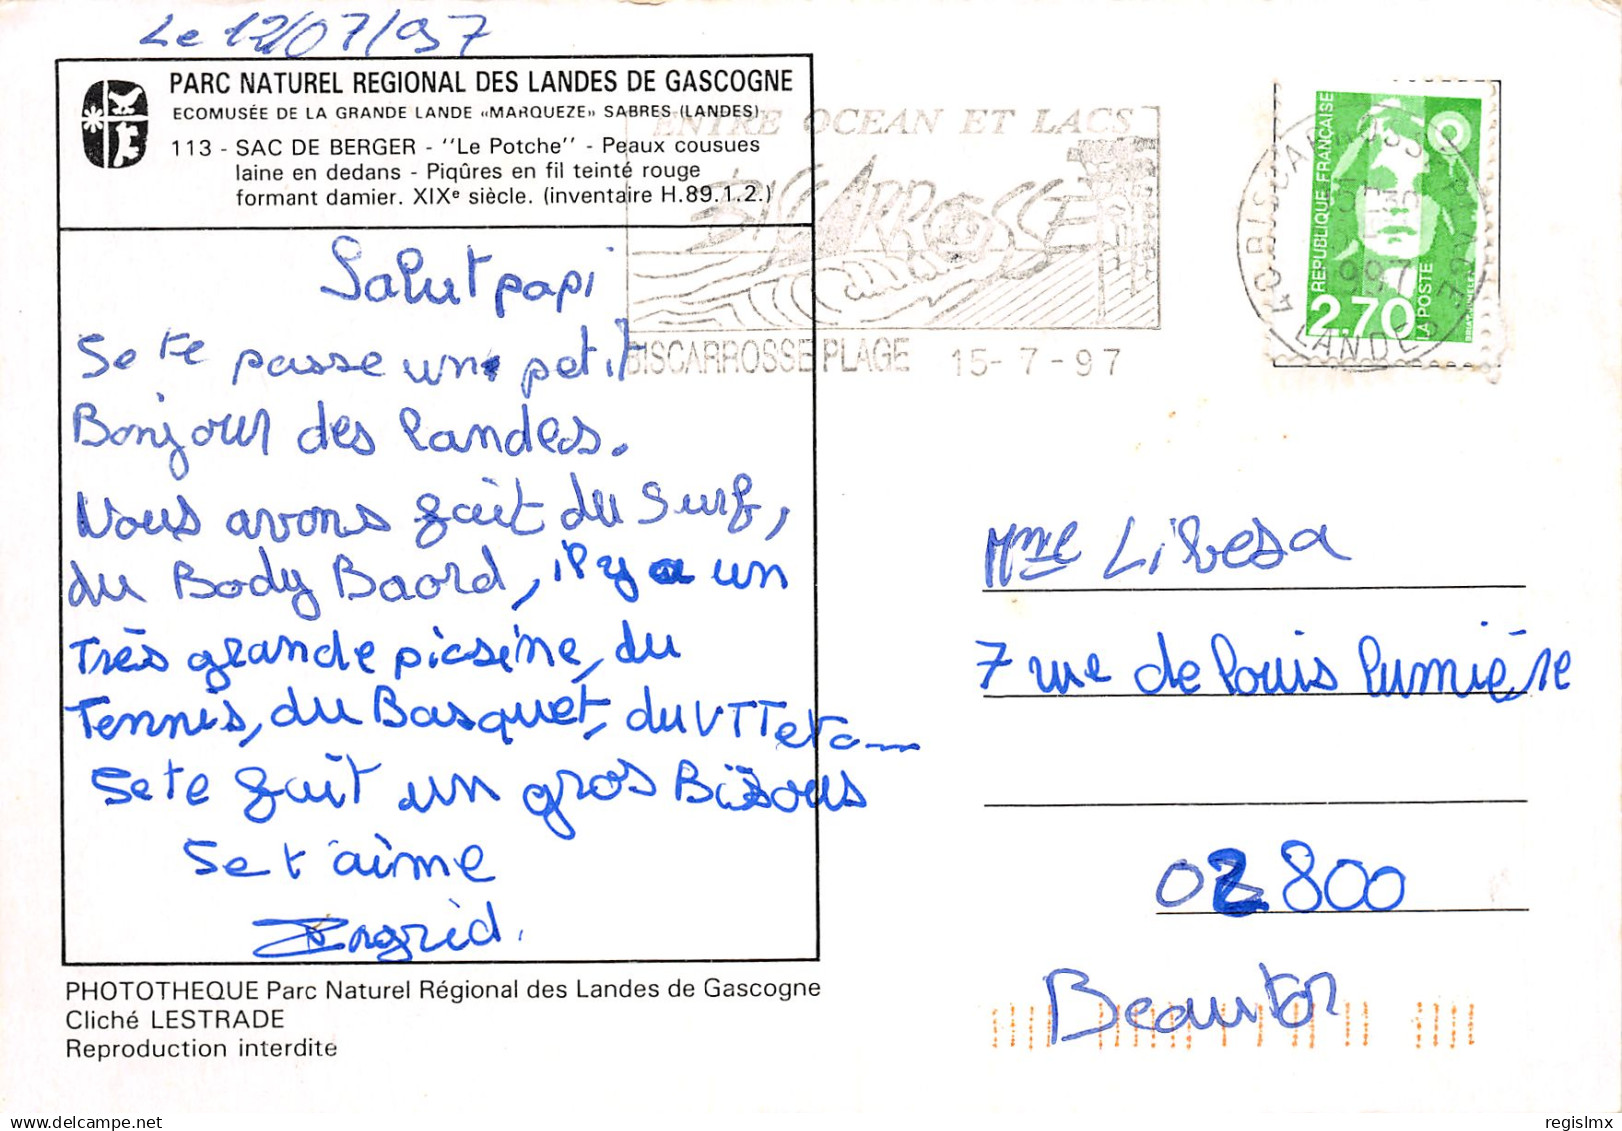 Le 12/07/97
PARC NATUREL REGIONAL DES LANDES DE GASCOGNE
ECOMUSÉE DE LA GRANDE LANDE «MARQUEZE» SABRES (LANDES)
113 - SAC DE BERGER - "Le Potche" - Peaux cousues
laine en dedans - Piqûres en fil teinté rouge
formant damier. XIXe siècle. (inventaire H.89.1.2.)
ENTRE OCEAN ET LACS
BISCARROSSE
BISCARROSSE PLAGE 15-7-97
REPUBLIQUE FRANÇAISE
2,70
LA POSTE
40 BISCARROSSE PLAGE
LANDES
Salut papi
Se te passe un petit
Bonjour des landes.
Nous avons fait du surf,
du Body Baord, il y a un
Très grande picsine, du
Tennis, du Basquet, du VTT etc...
Se te fait un gros Bisous
Se t'aime
Ingrid.
Mme Libesa
7 rue de louis lumière
02800
Beautor
PHOTOTHEQUE Parc Naturel Régional des Landes de Gascogne
Cliché LESTRADE
Reproduction interdite
regislmx